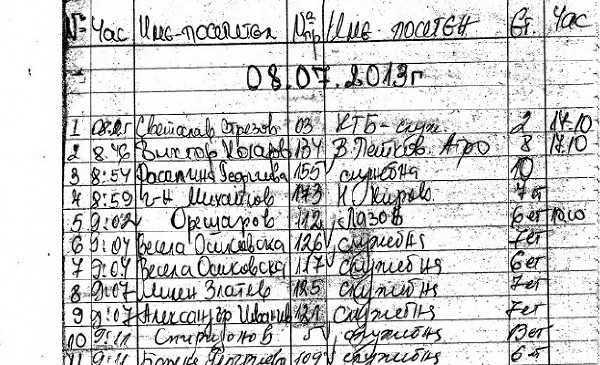 № Час Име-посетител № пр. Име посетен Ет. Час
08.07.2013г
1 08:25 Светослав 03 КТБ-служ. 2 17.10
2 8.46 Виктор 134 В. Петков. Агро 8 17.10
3 8:54 Георгиева 155 служебна 10
4 8:59 г-н Михайлов 173 Н. Киров 7 ет
5 9:02 Орешаров 112 Лазов 6 ет
6 9:04 Весела Осиковска 126 служебна 7ет
7 9:04 Весела Осиковска 117 служебна 6ет
8 9:07 Златев 125 служебна 7ет
9 9:07 Александър 121 служебна 7ет
10 9:11 Спиридонов 5 служебна ет
11 9:11 109 служебна 6 ет